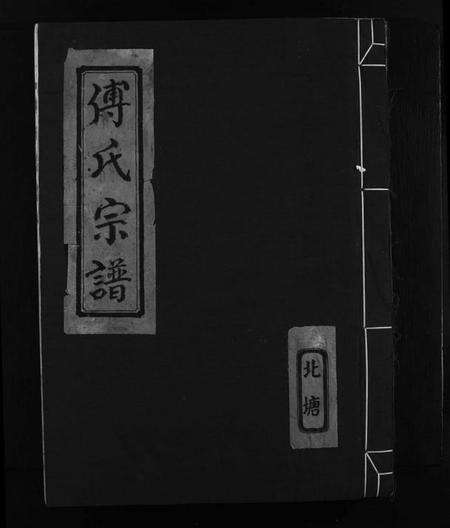 傅氏宗譜
北塘